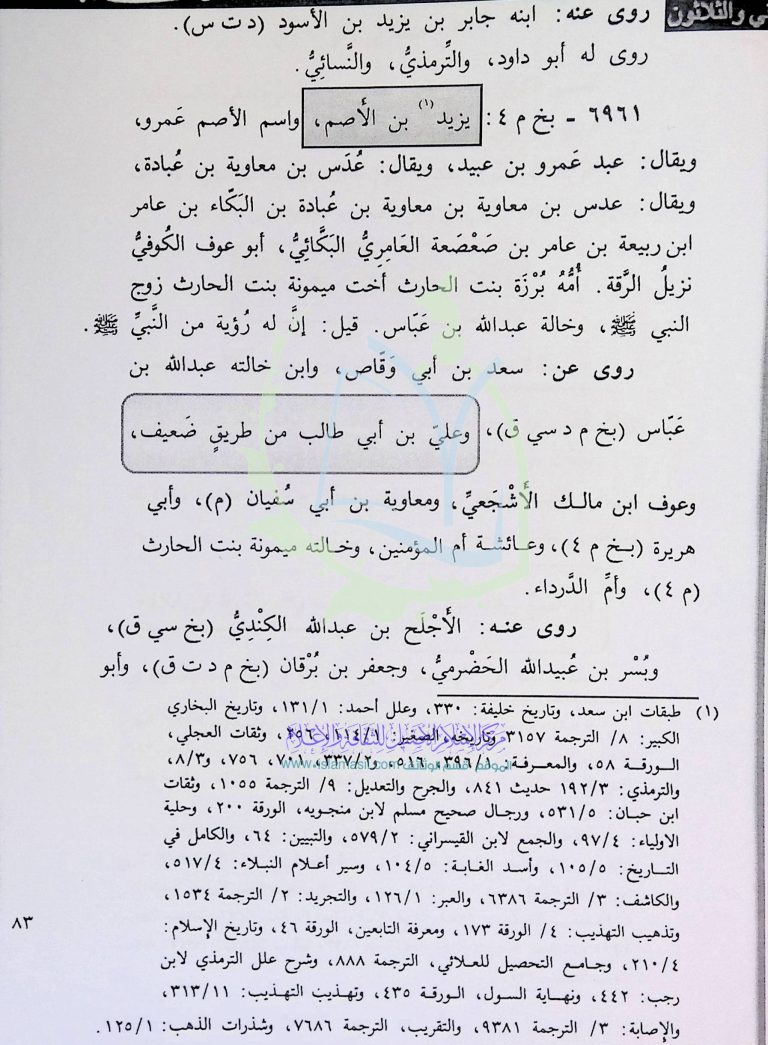 ني والثلاثون
روى عنه: ابنه جابر بن يزيد بن الأسود (د ت س).
روى له أبو داود، والتِّرمذيُّ، والنَّسائيُّ.
٦٩٦١ - بخ م ٤: يزيد(١) بن الأَصم، واسم الأصم عَمرو،
ويقال: عبد عَمرو بن عبيد، ويقال: عُدَس بن معاوية بن عُبادة،
ويقال: عدس بن معاوية بن معاوية بن عُبادة بن البَكّاء بن عامر
ابن ربيعة بن عامر بن صَعْصَعة العَامِريُّ البَكَّائِيُّ، أبو عوف الكُوفيُّ
نزيلُ الرَّقة. أُمُّهُ بُرْزَة بنت الحارث أخت ميمونة بنت الحارث زوج
النبي ﷺ، وخالة عبدالله بن عَبَّاس. قيل: إنَّ له رُؤية من النَّبيِّ ﷺ.
روى عن: سعد بن أبي وَقَاص، وابن خالته عبدالله بن
عَبَّاس (بخ م د سي ق)، وعليّ بن أبي طالب من طريقٍ ضَعيف،
وعوف ابن مالك الأَشْجَعيِّ، ومعاوية بن أبي سُفيان (م)، وأبي
هريرة (بخ م ٤)، وعائشة أم المؤمنين، وخالته ميمونة بنت الحارث
(م ٤)، وأمِّ الدَّرداء.
روى عنه: الأَجْلَح بن عبدالله الكِنْدِيُّ (بخ سي ق)،
وبُسْر بن عُبيدالله الحَضْرميُّ، وجعفر بن بُرْقان (بخ م د ت ق)، وأبو
(١) طبقات ابن سعد، وتاريخ خليفة: ٣٣٠، وعلل أحمد: ١/ ١٣١، وتاريخ البخاري
الكبير: ٨/ الترجمة ٣١٥٧ وتاريخه الصغير: ، وثقات العجلي،
مركز الإسلام الأصيل للثقافة والإعلام
الورقة ٥٨، والمعرفة: ١/ ٣٩٦، ٥١٦، و٢/ ٣٣٧، ٧٠١، ٧٥٦، و٣/ ٨،
www.islamasil.com
والترمذي: ٣/ ١٩٢ حديث ٨٤١، والجرح والتعديل: ٩/ الترجمة ١٠٥٥، وثقات
ابن حبان: ٥/ ٥٣١، ورجال صحيح مسلم لابن منجويه، الورقة ٢٠٠، وحلية
الاولياء: ٤/ ٩٧، والجمع لابن القيسراني: ٢/ ٥٧٩، والتبيين: ٦٤، والكامل في
التاريخ: ٥/ ١٠٥، وأسد الغابة: ٥/ ١٠٤، وسير أعلام النبلاء: ٤/ ٥١٧،
والكاشف: ٣/ الترجمة ٦٣٨٦، والعبر: ١/ ١٢٦، والتجريد: ٢/ الترجمة ١٥٣٤،
وتذهيب التهذيب: ٤/ الورقة ١٧٣، ومعرفة التابعين، الورقة ٤٦، وتاريخ الإسلام:
٤/ ٢١٠، وجامع التحصيل للعلائي، الترجمة ٨٨٨، وشرح علل الترمذي لابن
رجب: ٤٤٢، ونهاية السول، الورقة ٤٣٥، وتهذيب التهذيب: ١١/ ٣١٣،
والإصابة: ٣/ الترجمة ٩٣٨١، والتقريب، الترجمة ٧٦٨٦، وشذرات الذهب: ١/ ١٢٥.
٨٣